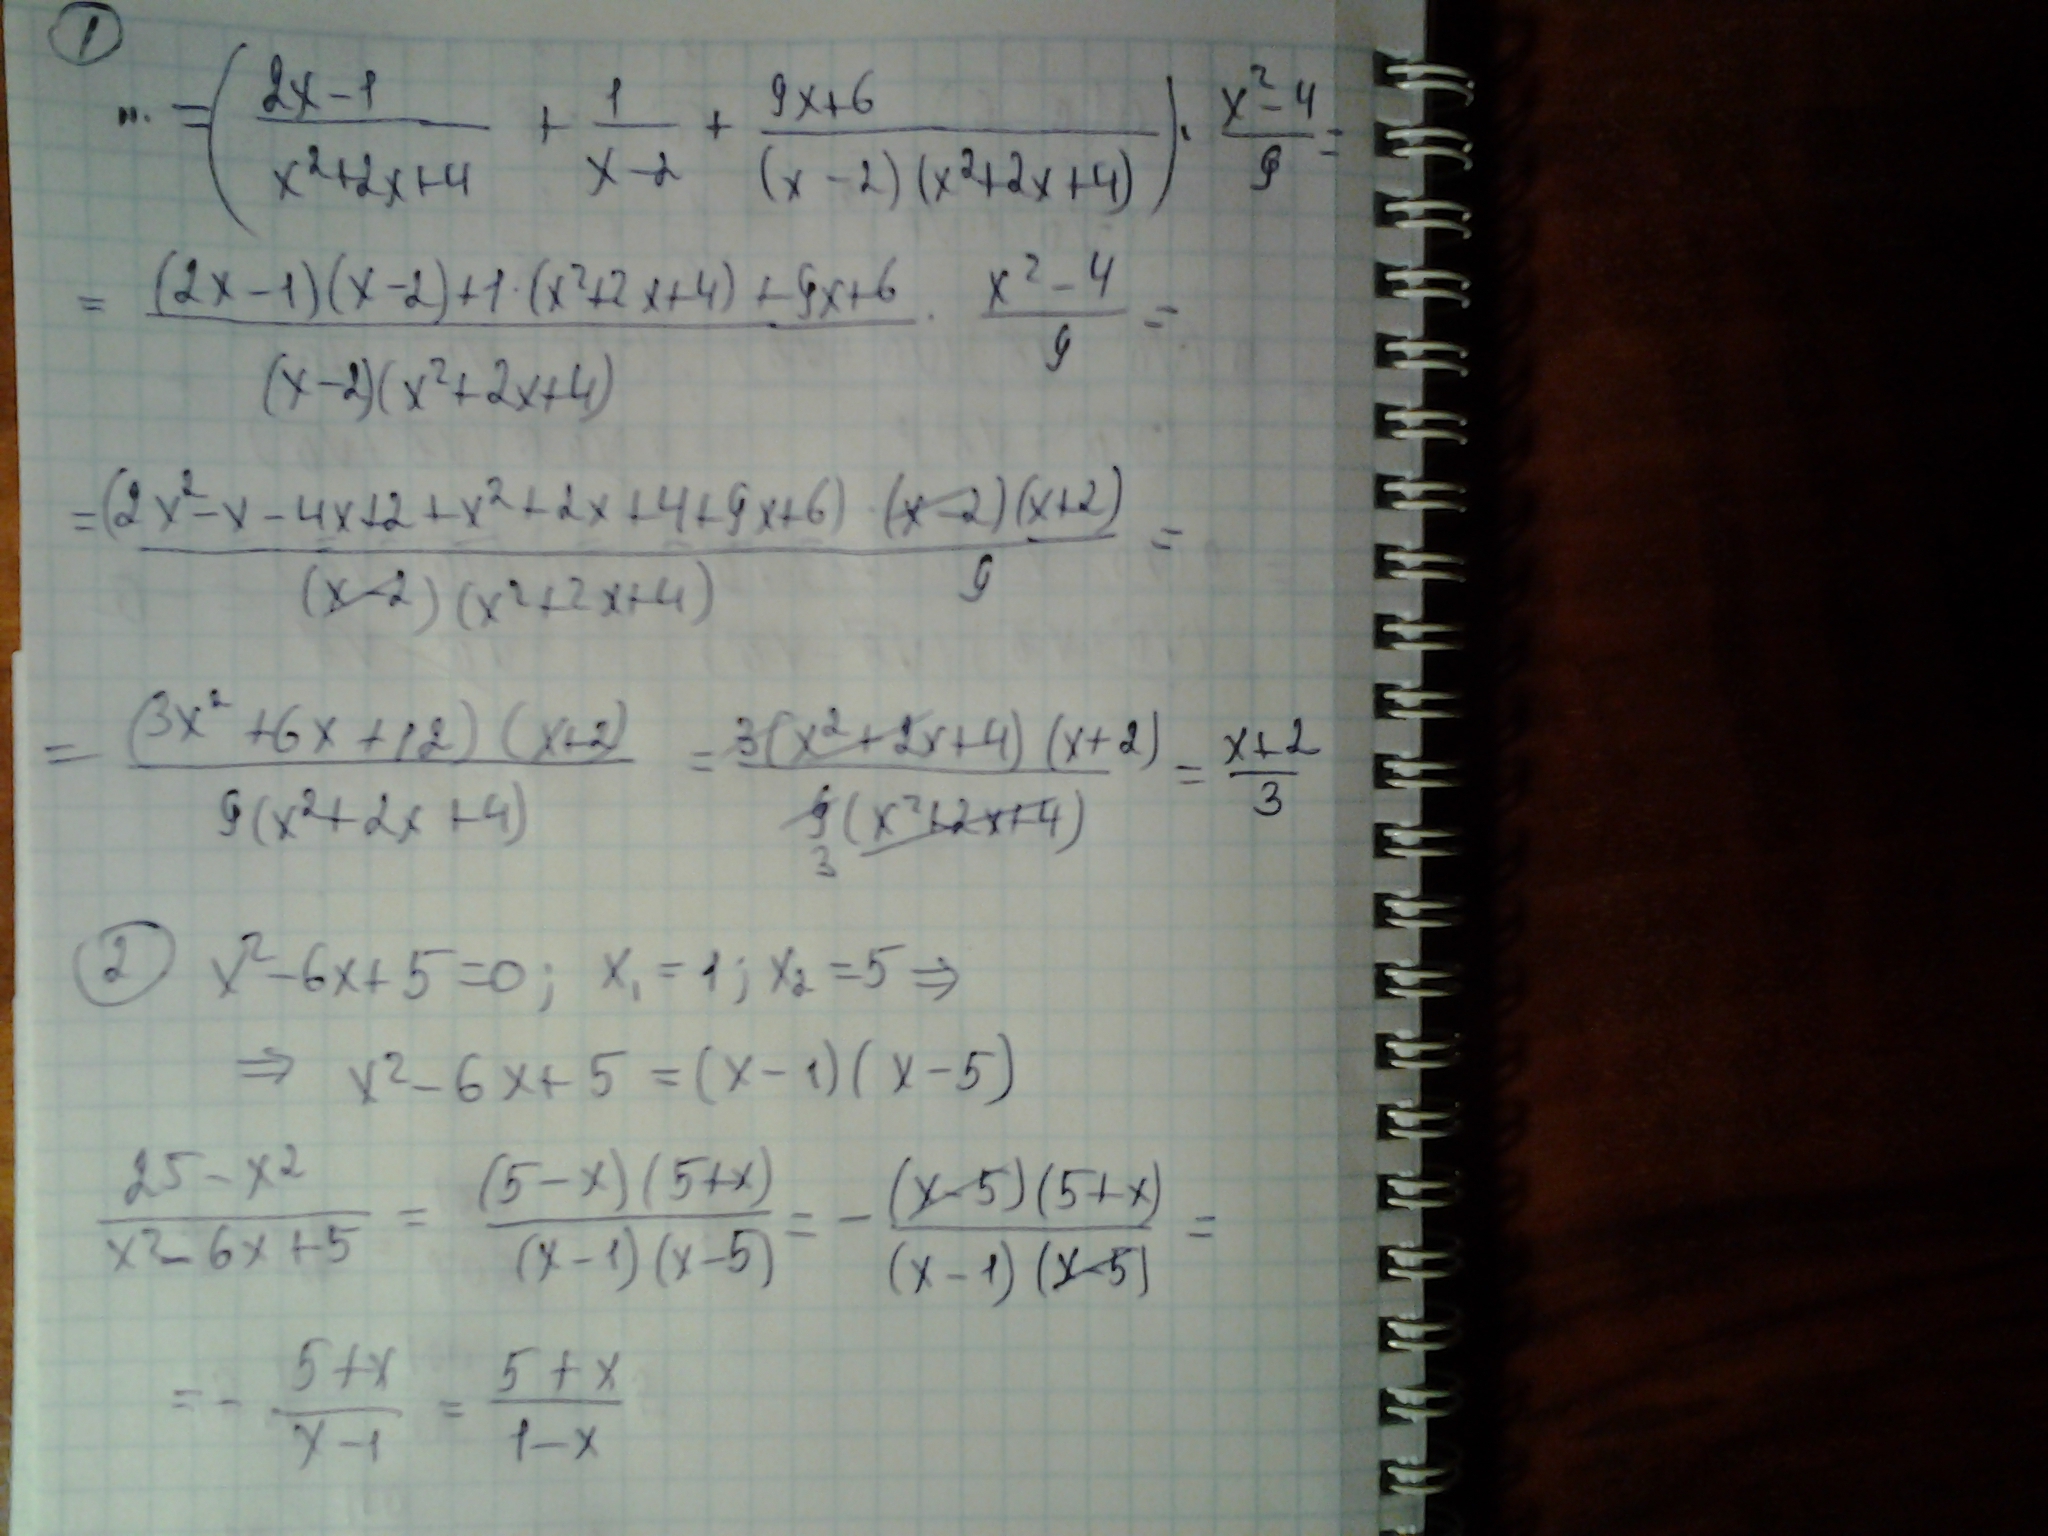 1
... = ( (2x-1)/(x²+2x+4) + 1/(x-2) + (9x+6)/((x-2)(x²+2x+4)) ) · (x²-4)/9 =
= ((2x-1)(x-2)+1·(x²+2x+4)+9x+6)/((x-2)(x²+2x+4)) · (x²-4)/9 =
= ((2x²-x-4x+2+x²+2x+4+9x+6)·(x-2)(x+2))/((x-2)(x²+2x+4) 9) =
= ((3x²+6x+12)(x+2))/(9(x²+2x+4)) = (3(x²+2x+4)(x+2))/(9(x²+2x+4)) = (x+2)/3
3
2 x²-6x+5=0; x₁=1; x₂=5 ⇒
⇒ x²-6x+5=(x-1)(x-5)
(25-x²)/(x²-6x+5) = ((5-x)(5+x))/((x-1)(x-5)) = - ((x-5)(5+x))/((x-1)(x-5)) =
= - (5+x)/(x-1) = (5+x)/(1-x)